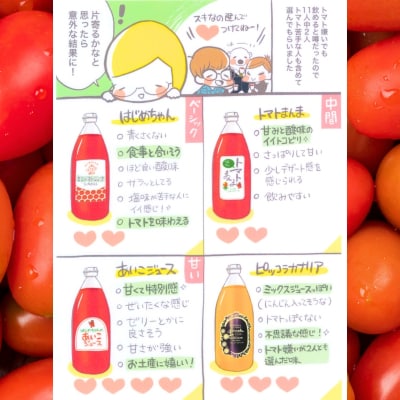 トマト嫌いでも
飲めると噂だったので
11人中2人
トマト苦手な人も含めて
選んでもらいました
スキなの選んで
つけてねー！
片寄るかなと
思ったら
意外な結果に！
ベーシック
はじめちゃん
青くさくない
食事と合いそう
ほど良い酸味
サラッとしてる
塩味が苦手な人に
イイ感じ！
トマトを味わえる
中間
トマトまんま
甘みと酸味の
イイトコどり
さっぱりして甘い
少しデザート感を
感じられる
飲みやすい
甘い
あいこジュース
甘くて特別感
ぜいたくな感じ
ゼリーとかに
良さそう
甘さが強い
お土産に嬉しい！
あいこ
ジュース
ピッコラカナリア
ミックスジュースっぽい
（にんじん入ってそうな）
トマトっぽくない
不思議な感じ！
トマト嫌いが2人とも
選んだ味